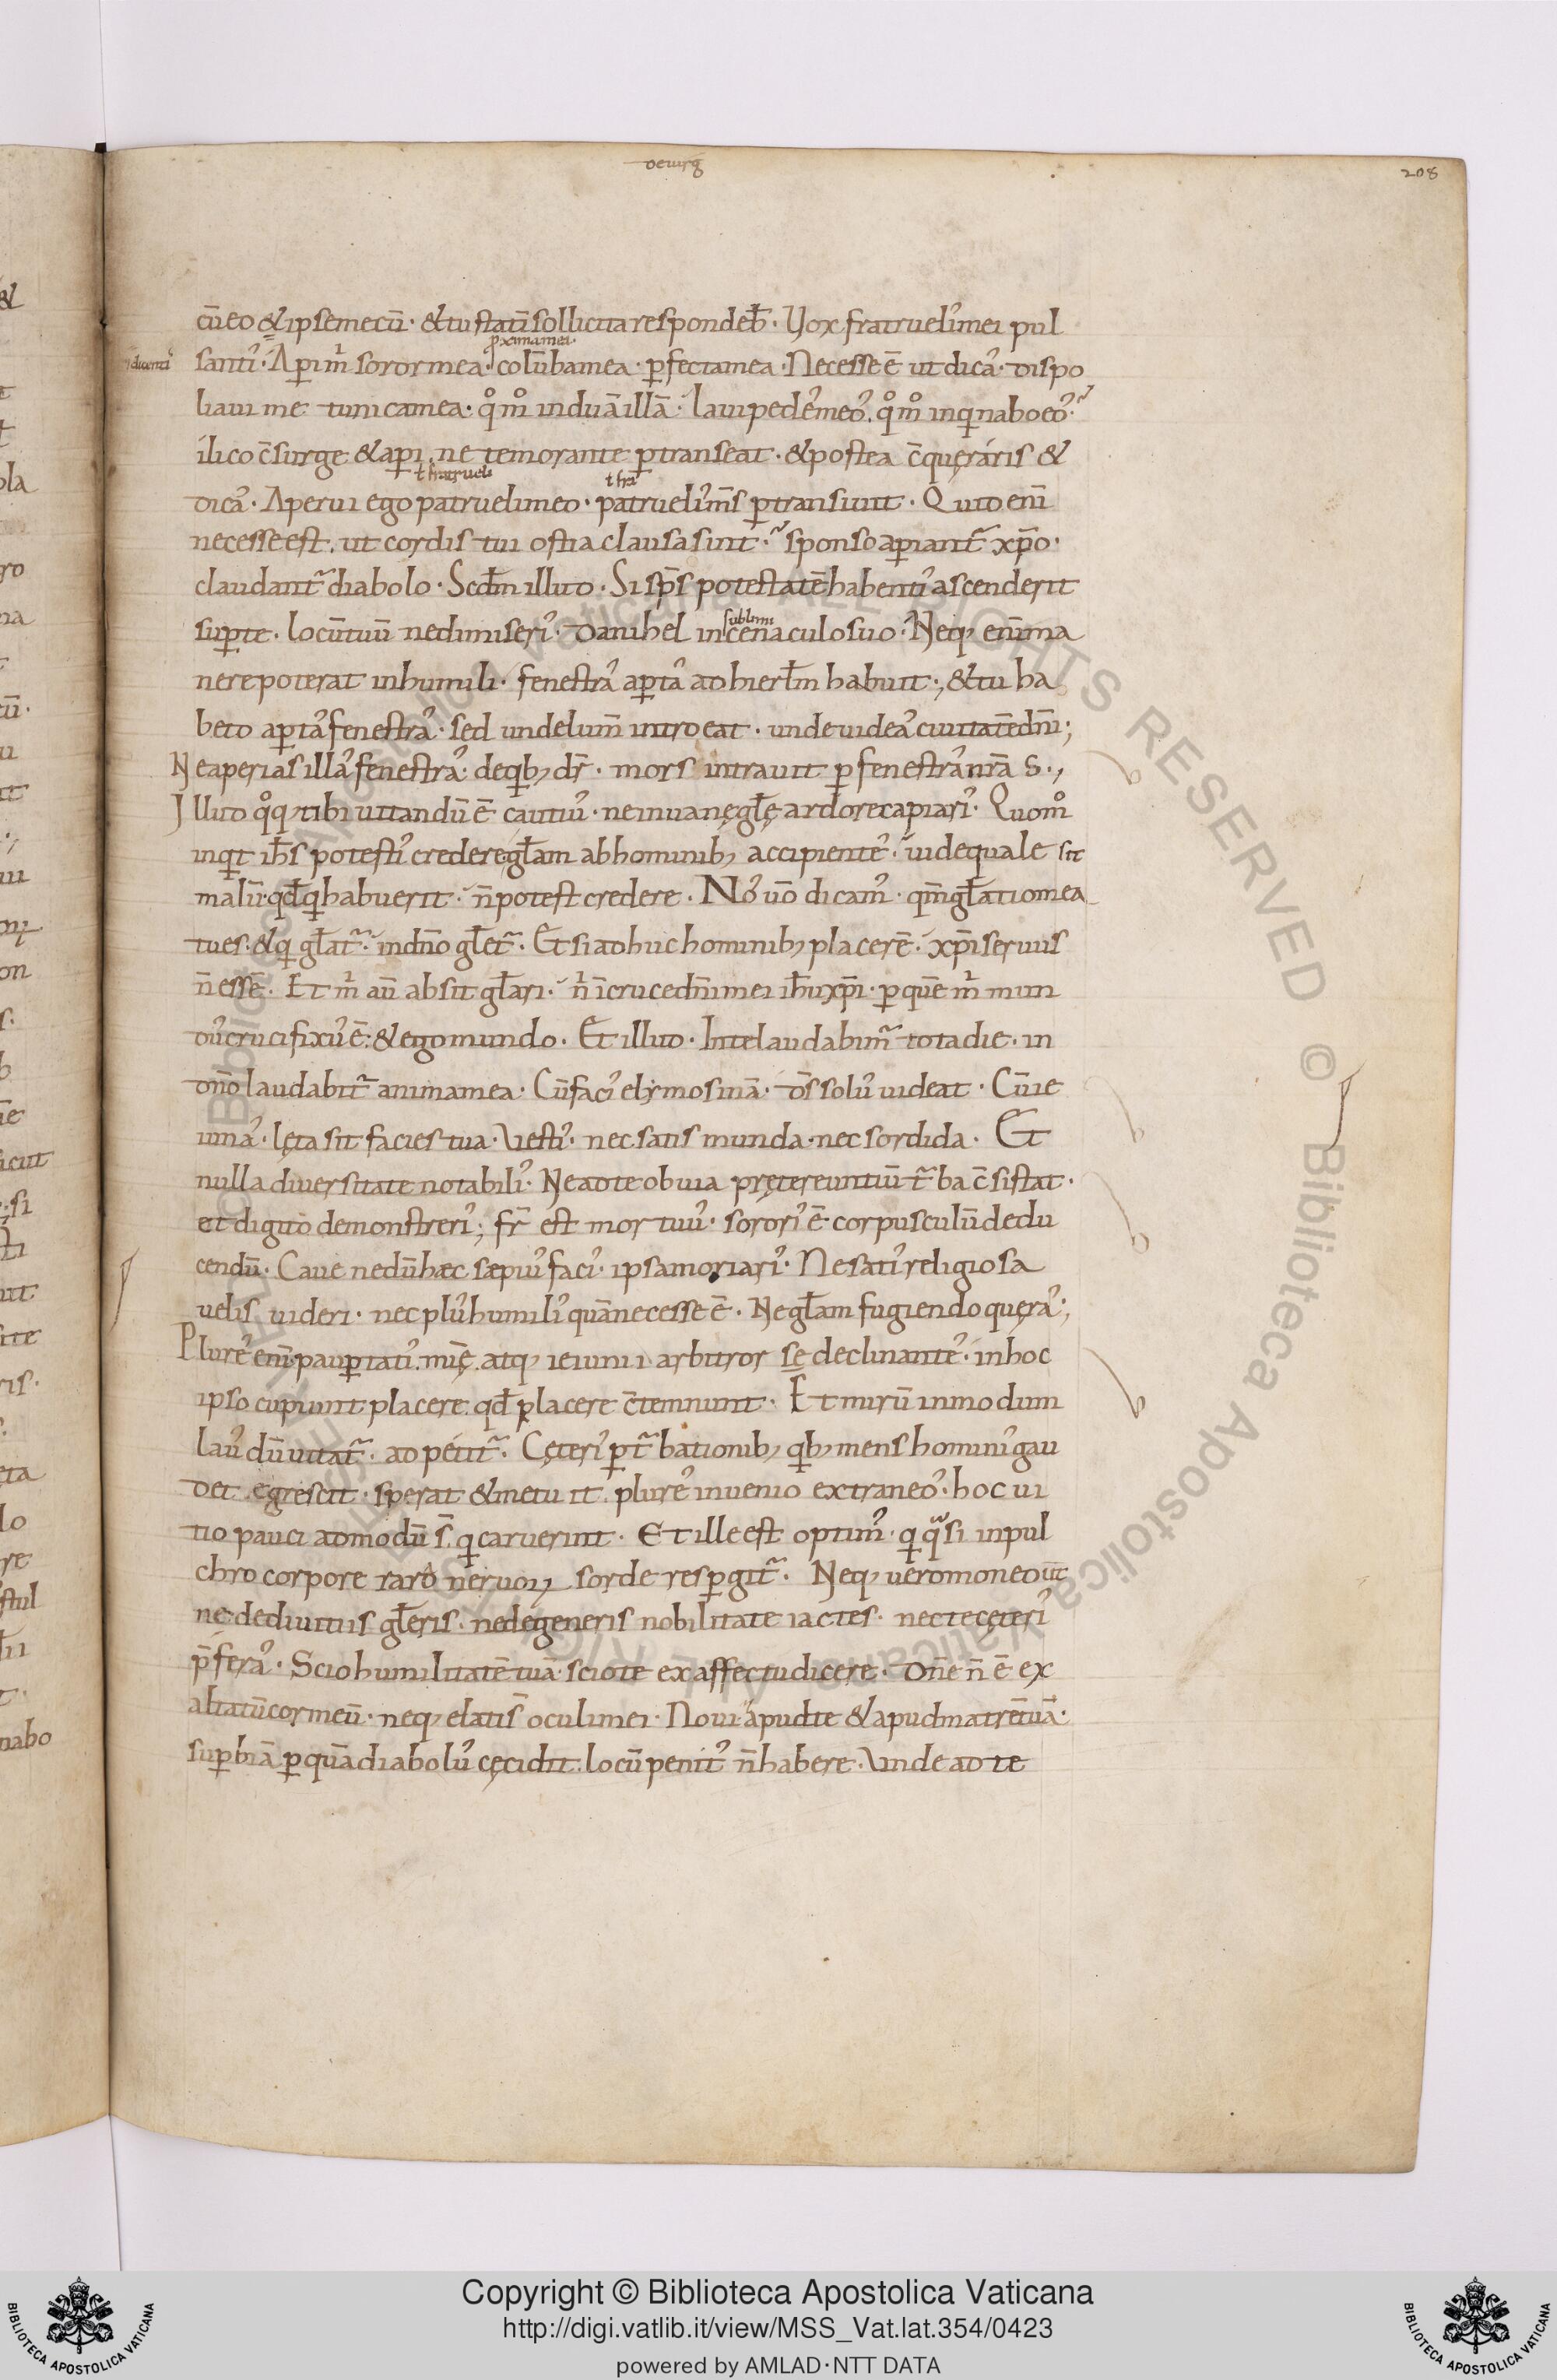 de uirg̅
208
cū eo & ipse mecū · & tu statī sollicita respondeb̅ · Vox fratruel᾿ mei pul
p̱xima mei·
⁊ dicenti᾿
santi᾿ · Ap̱i m̅ soror mea · colūba mea · p̱fecta mea · Necesse ē ut dica᾿ · dispo
liaui me tunica mea · qͦmͦ induā illā · laui pede᾿ meo᾿ · qͦmͦ inqͥnabo eo᾿ ·
ilico c̄surge & ap̱i · ne te morante p̱transeat · & postea c̄queraris &
ł fratrueli
ł fra
dica᾿ · Aperui ego patrueli meo · patrueli᾿ ms̄ p̱transiuit · Quid enī
necesse est · ut cordis tui ostia clausa sint · sponso ap̱iant᷑ xp̄o ·
claudant᷑ diabolo · Scd̄m illud · Si sp̄s potestatē habenti᾿ ascenderit
sup̱ te · locū tuū ne dimiseri᾿ · danihel in cenaculo suo · Neq; enī ma
sublimi
nere poterat in humili · fenestra᾿ ap̱ta᾿ ad hierłm habuit ·, & tu ha
beto ap̱ta᾿ fenestra᾿ · sed unde lum̄ introeat · unde uidea᾿ ciuitatē dn̄i ;
Ne aperias illa᾿ fenestra᾿ · de qͥb; dr̄ · mors intrauit p̱ fenestra᾿ nr̄a s ·,
Illud qͦq; tibi uitandū ē cautiu᾿ · ne inanę głę ardore capiari᾿ · Quomͦ
inqͥt ih̄s potesti᾿ credere głam ab hominib; accipiente᾿ · uide quale sit
malū · qd̄ qͥ habuerit · n̄ potest credere · No᾿ uō dicam᾿ · qm̄ głatio mea
tu es · & qͥ głat᷑ · in dn̄o głet᷑ · Et si adhuc hominib; placerē · xp̄i seruus
n̄ essē · Et m̅ aū absit głari · n̅ ī cruce dn̄i mei ih̄u xp̄i · p̱ quē m̅ mun
du᾿ crucifixu᾿ ē · & ego mundo · Et illud · In te laudabim᷑ tota die · in
dn̄o laudabit᷑ anima mea · Cū faci᾿ elymosinā · ds̄ solu᾿ uideat · Cū ie
iuna᾿ · lęta sit facies tua · Vesti᾿ · nec satis munda · nec sordida · Et
nulla diuersitate notabili᾿ · Ne ad te obuia prętereuntiū t᷑ba c̄sistat ·
et digito demonstreri᾿ ; fr̄ est mortuu᾿ · sorori᾿ ē corpusculū dedu
cendū · Caue ne dū hæc sæpiu᾿ faci᾿ · ipsa moriari᾿ · Ne sati᾿ religiosa
uelis uideri · nec plu᾿ humili᾿ quā necesse ē · Ne głam fugiendo quęra᾿ ;
Plure᾿ enī paup̱tati᾿ · mīę · atq; ieiunii arbitror se declinante᾿ · in hoc
ipso cupiunt placere · qd̄ placere c̄temnunt · Et mirū in modum
lau᾿ dū uitat᷑ · adpetit᷑ · Cęteri᾿ p̱t᷑bationib; qͥb; mens homini᾿ gau
det · egrescit · sperat & metuit · plure᾿ inuenio extraneo᾿ · hoc ui
tio pauci admodū s̄ · qͥ caruerint · Et ille est optim᾿ · qͥ qͣsi in pul
chro corpore raro neruoꝝ sorde resp̱git᷑ · Neq; uero moneo ut
ne de diuitiis głeris · ne de generis nobilitate iactes · nec te cęteri᾿
p̄fera᾿ · Scio humilitatē tuā · scio te ex affectu dicere · dn̄e n̄ ē ex
altatū cor meū · neq; elati s̄ oculi mei · Noui apud te & apud matrē tuā ·
sup̱biā p̱ quā diabolu᾿ cęcidit · locū penit᾿ n̄ habere · Vnde ad te
Copyright © Biblioteca Apostolica Vaticana
http://digi.vatlib.it/view/MSS_Vat.lat.354/0423
powered by AMLAD·NTT DATA
BIBLIOTECA APOSTOLICA VATICANA
BIBLIOTECA APOSTOLICA VATICANA